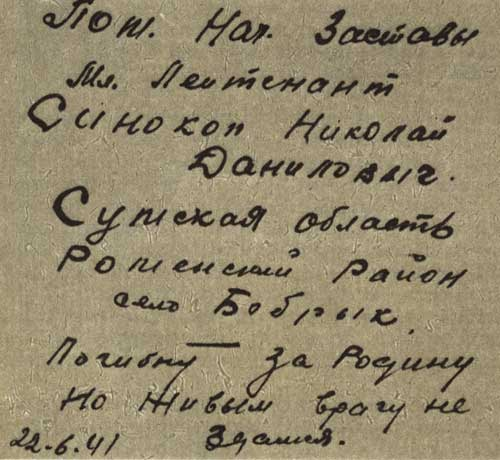 Пом. Нач. Заставы
Мл. Лейтенант
Синокоп Николай
Даниловыч.
Сумская область
Роменский район
село Бобрык.
Погибну за Родину
Но живым врагу не
22.6.41 здамся.